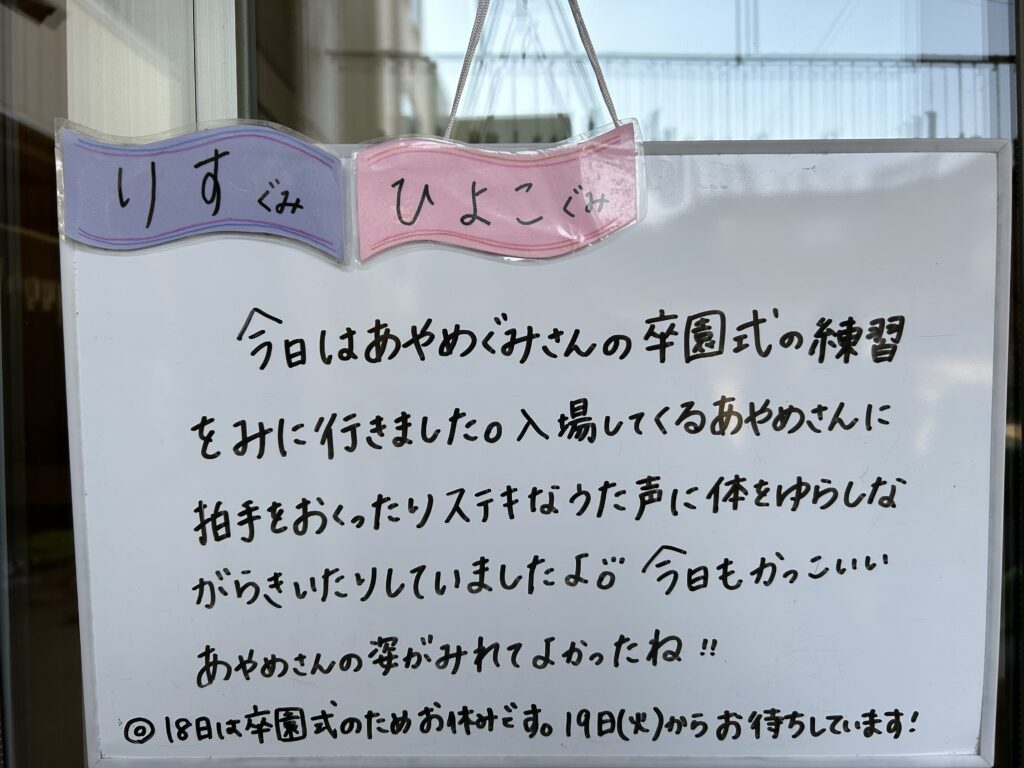 りすぐみ
ひよこぐみ
今日はあやめぐみさんの卒園式の練習
をみに行きました。入場してくるあやめさんに
拍手をおくったりステキなうた声に体をゆらしな
がらきいたりしていましたよ。今日もかっこいい
あやめさんの姿がみれてよかったね!!
◎18日は卒園式のためお休みです。19日(火)からお待ちしています!